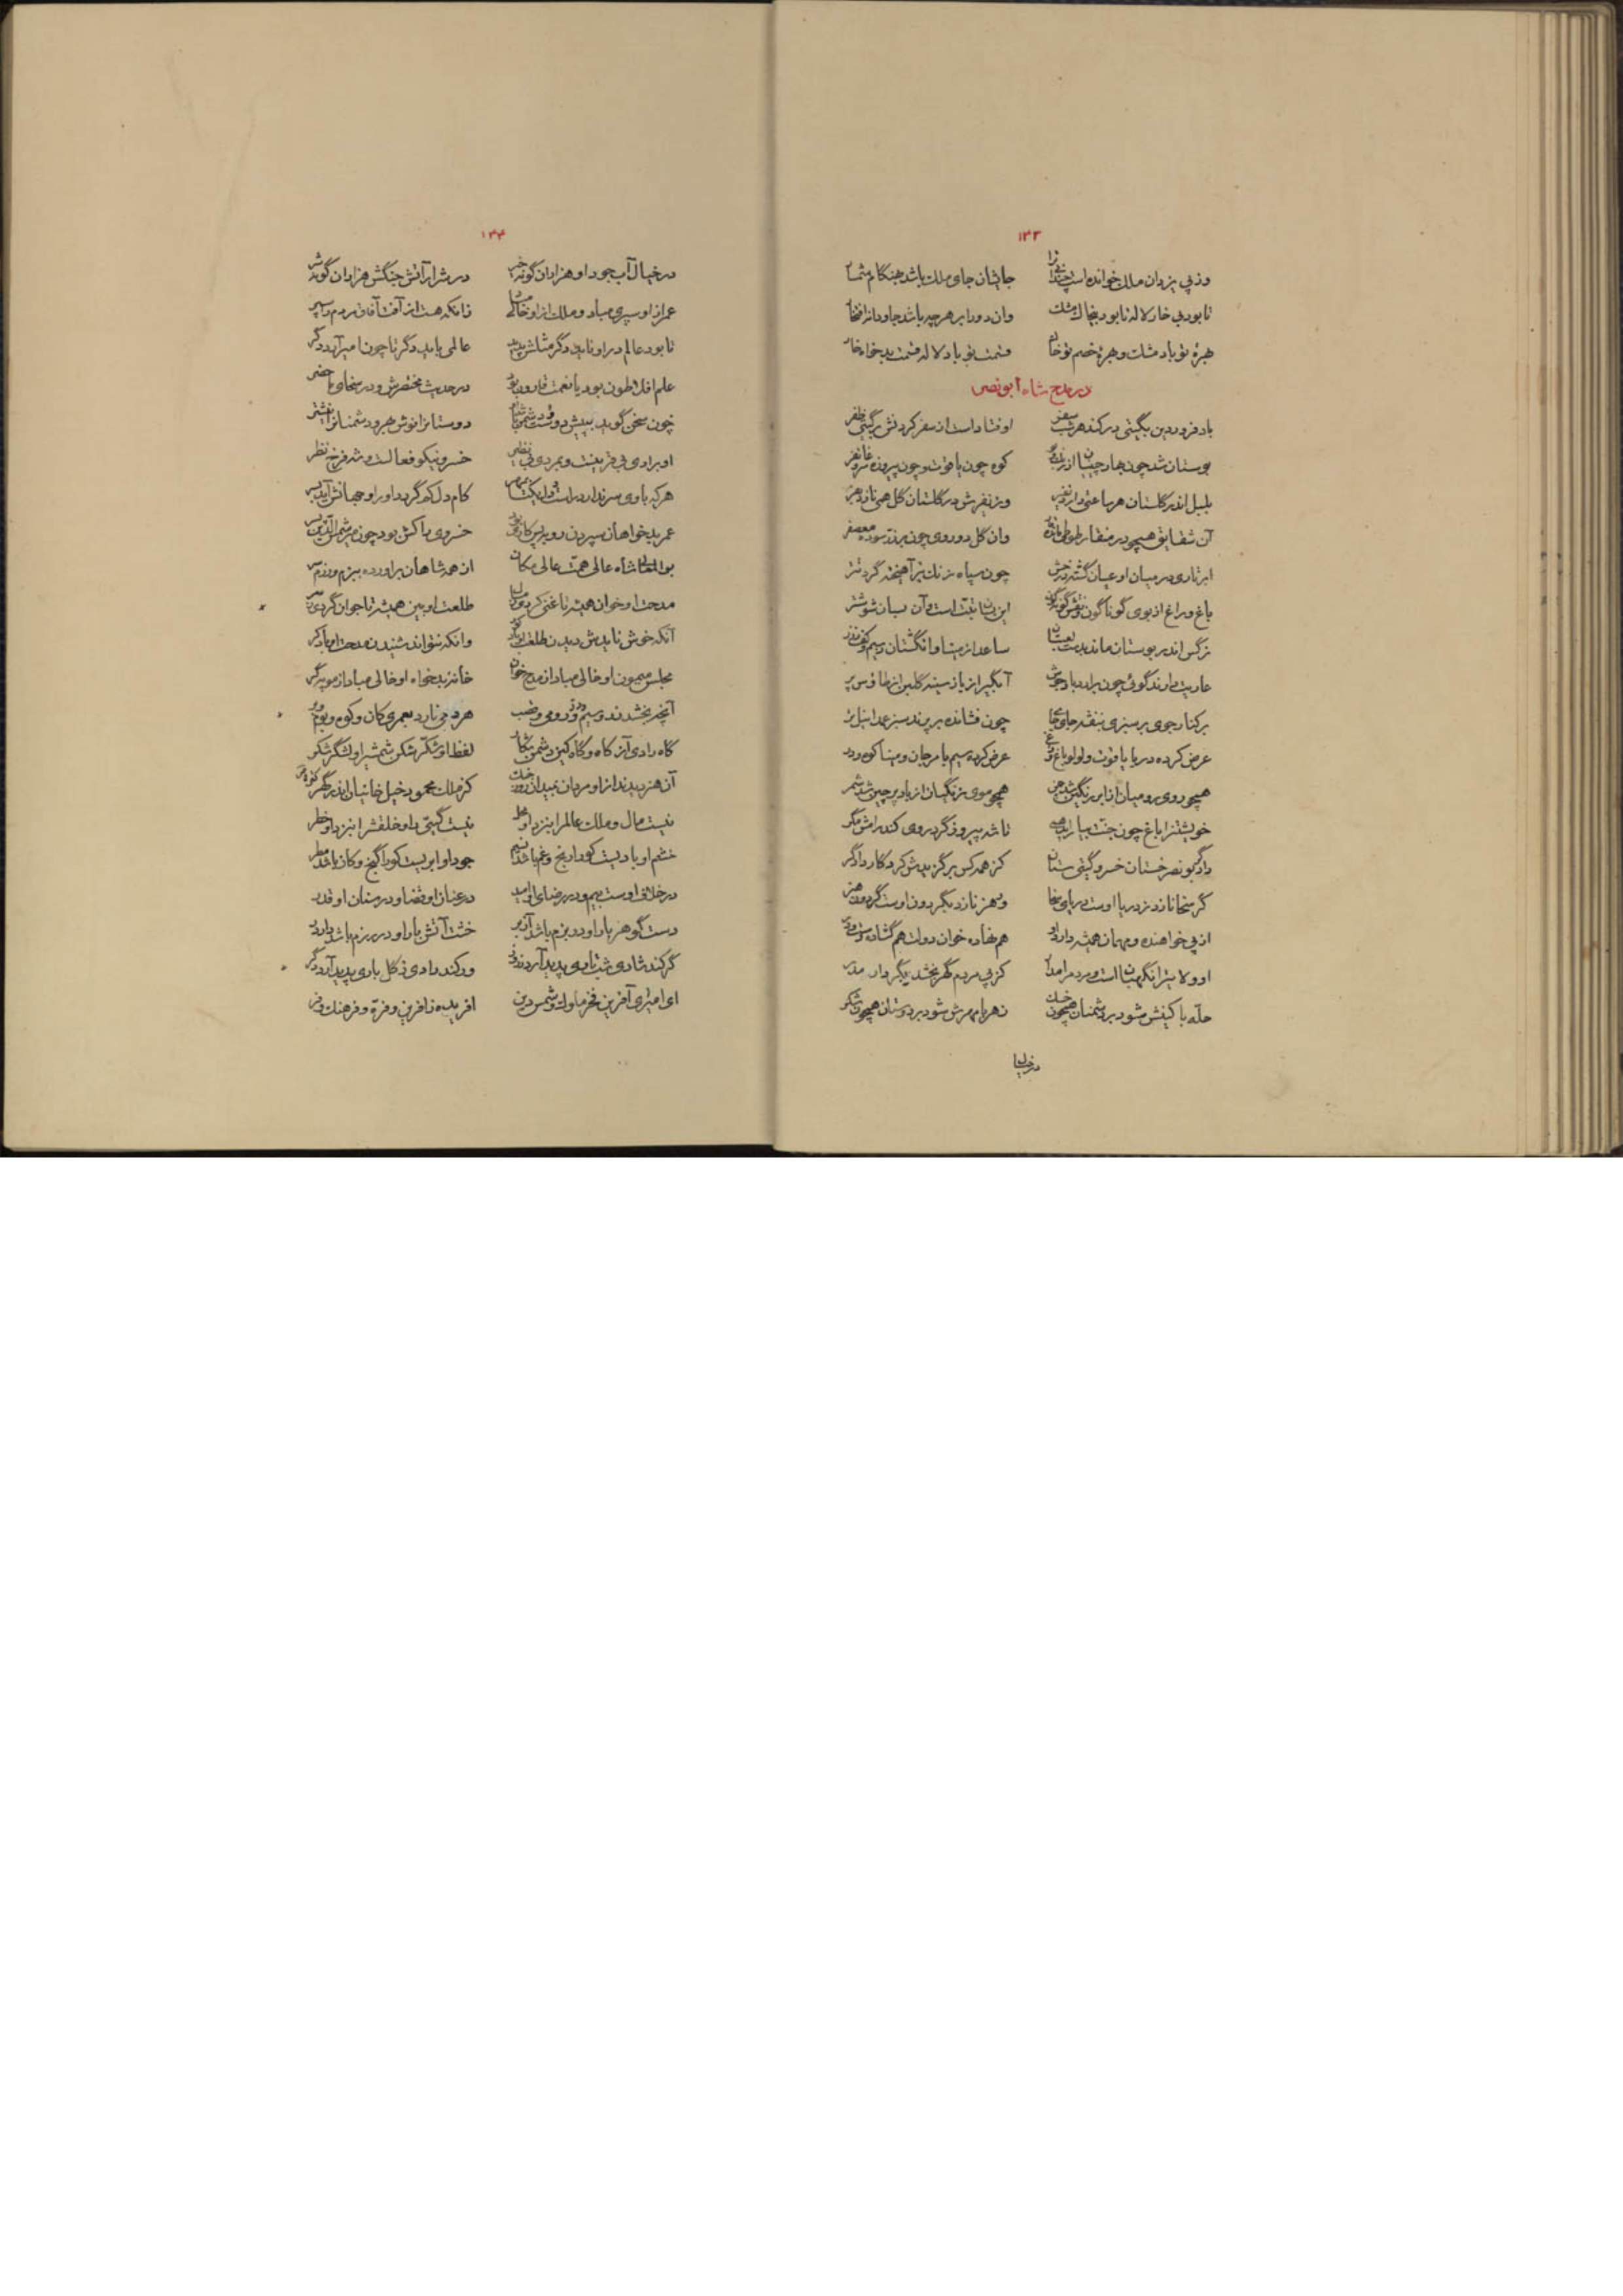 ۱۳۳
وز پی یزدان ملک خوانده است
جایشان جای ملک باشد هنگام شمار
تا بود بی خار لاله تا بود بیخاک مشک
وان دو را بر هر چه باشد جاودانه افتخار
بهرهٔ تو باد مشک و بهرهٔ خصم تو خاک
قسمت تو باد لاله قسمت بدخواه خار
در مدح شاه ابونصر
باد فروردین بگیتی در کند هر شب سفر
اوفتاد است از سفر کردنش بر گیتی ظفر
بوستان شد چون بهار چینیان از رنگ
کوه چون یاقوت و چون پیروزه شد
بلبل اندر گلستان هر ساعتی دارد نفیر
وز نفیرش در گلستان گل همی نازد
آن شقایق همچو در منقار طوطی
وان گل دو روی چون بر زر سوده معصفر
ابر تاری در میان او عیان گشته درخش
چون سپاه زنگ تیر آهیخته گرد
باغ و راغ از بوی گوناگون و نقش گونه گون
این بسان تبت است و آن بسان شوشتر
نرگس اندر بوستان ماند بدست
ساعد از مینا و انگشتان ز سیم و کف ز زر
عاریت دارند گوئی چون برارد باد جوش
آبگیر از باز سینه گلبن از طاوس پر
بر کنار جوی بر سبزی بنفشه جای جای
چون فشانده بر پرند سبز عمدا نیل تر
عرض کرده دریا یاقوت و لولو باغ
عرض کرده سیم با مرجان و مینا کوه و در
همچو روی رومیان از ابر رنگین شد
همچو موی زنگیان از باد پرچین شد شمر
خویشتن را باغ چون جنت بیاراید همی
تا شه پیروزگر در وی کند رامش مگر
دادگر بو نصر خستان خسرو گیتی ستان
کز همه کس برگزیدش کردگار دادگر
گر سخا نازد ز دریا اوست دریای سخا
ور هنر نازد بگردون اوست گردون هنر
از پی خواهنده و مهمان همیشه دارد او
هم نهاده خوان دولت هم گشاده
او ولایت را نگهبان است و مردم را مدار
کز پی مردم گهر بخشد بیگردار مدر
حله با کینش شود بر دشمنان همچون خسک
زهر با مهرش شود بر دوستان همچون شکر
در خیال
۱۳۴
در خیال آب جود او هزاران گونه خیر
در شرار آتش جنگش هزاران گونه شر
عمر از او سپری مباد و ملک از او خالی مباد
زانکه هست از آفت آفاق مردم را سپر
تا بود عالم در او ناید دگر مثلش پدید
عالمی باید دگر تا چون او میر آرد دگر
علم افلاطون بود یا نعمت قارون بود
در حدیث مختصرش و در سخای ما حضر
چون سخن گوید به پیش دوست و دشمن
دوستان را نوش بهر و دشمنان را نیشتر
او برادی بی قرینست و بمردی بی نظیر
خسرو نیکو فعالست و شه فرخ نظر
هر که با وی سر ندارد راست و دل یکتا
کام دل کی گردد او را و جهانش آید بسر
عمر بدخواهان سپردن رو بدین کار
خسروی با کش بود چون میر شمس الدین پسر
بو المعالی شاه عالی همت عالی مکان
از همه شاهان براورده ببزم و رزم سر
مدحت او خوان همیشه تا غنی گردی
طلعت او بین همیشه تا جوان گردی
آنکه خوش ناید بدیدن طلعت او
وانکه نتواند شنیدن مدحت او باد کر
مجلس میمون او خالی مباد از مدح خوان
خانهٔ بدخواه او خالی مباد از مویه گر
آنچه بخشد زر و سیم و در و رومی و قصب
هر دمی نارد بعمری کان و کوه و بوم و بر
گاه رادی آز کاه و گاه کین دشمن شکار
لفظ او شکر شکن شمشیر او لشگر شکر
آن هنر دیدند از او مردان بمیدان روز جنگ
کز ملک محمود خیل خانیان اندر
نیست مال و ملک عالم را بنزد او محل
نیست گیتی را و خلقش را بنزد او خطر
خشم او بادیست کورا رنج و غم باشد نسیم
جود او ابریست کورا گنج و کان باشد مطر
در خلاف اوست بیم و در رضای او امید
در عنان او قضا و در سنان او قدر
دست گوهر بار او در بزم باشد
خشت آتش بار او در رزم باشد
گر کند شادی شب تاری پدید آرد
ور کند رادی ز گل باری پدید آرد
ای امیری آفرین فخر ملوک و شمس دین
آفریده ز آفرین و فره و فرهنگ و فر